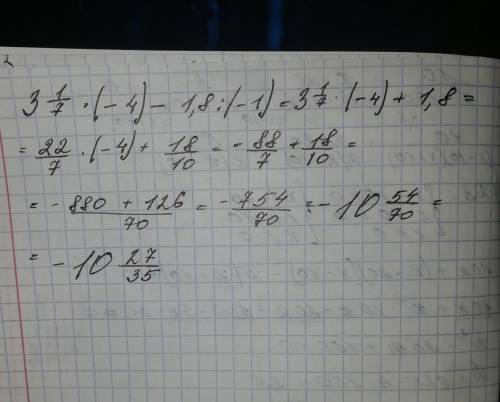 2
3 1/7 · (- 4) - 1,8 : (- 1) = 3 1/7 · (- 4) + 1,8 =
= 22/7 · (- 4) + 18/10 = - 88/7 + 18/10 =
= - 880 + 126/70 = - 754/70 = - 10 54/70 =
= - 10 27/35